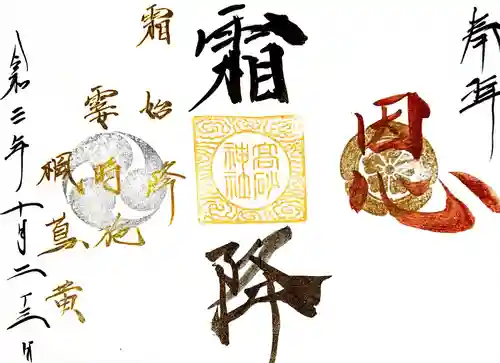 奉拝
恩
霜
降
高砂
神社
霜始降
霎時施
楓蔦黄
令和三年十月二十三日